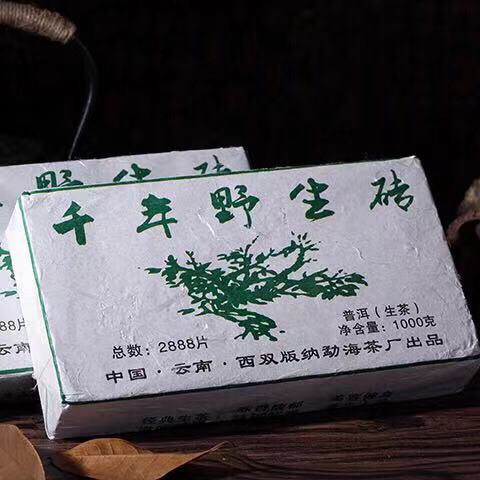 千年野生砖
普洱（生茶）
总数：2888片
净含量：1000克
中国·云南·西双版纳勐海茶厂出品
经典生茶